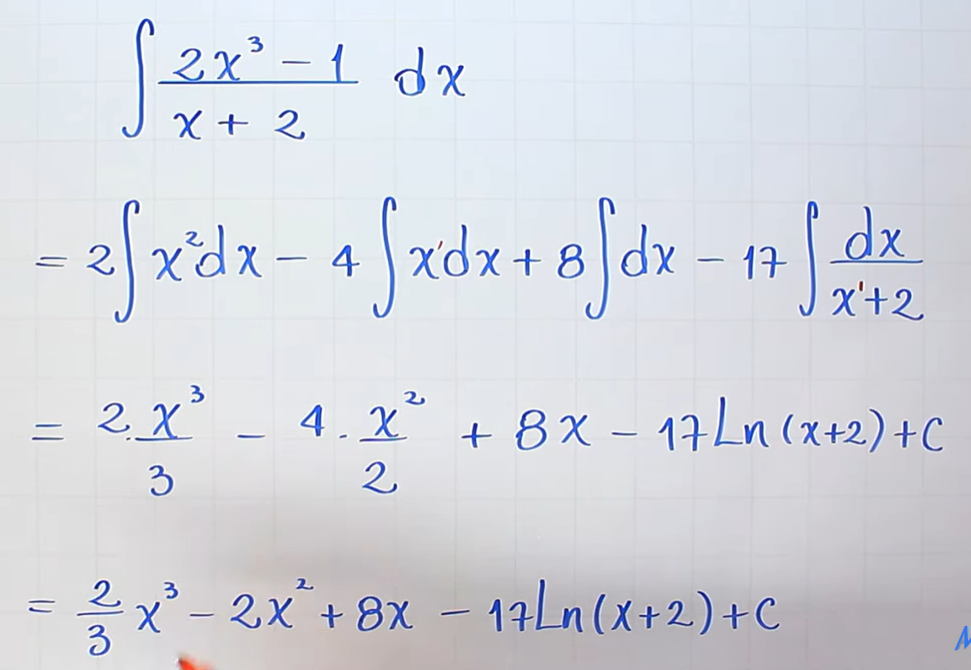 ∫ (2x³ − 1)/(x + 2) dx
= 2∫x²dx − 4∫x'dx + 8∫dx − 17∫dx/(x'+2)
= 2·x³/3 − 4·x²/2 + 8x − 17Ln(x+2)+C
= 2/3 x³ − 2x² + 8x − 17Ln(x+2)+C